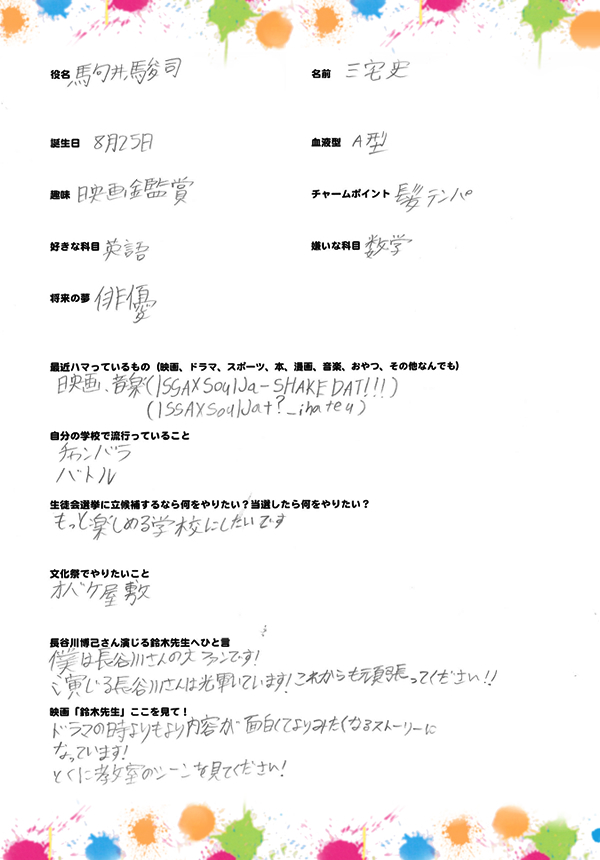 役名 馬句井駿司
名前 三宅史
誕生日 8月25日
血液型 A型
趣味 映画鑑賞
チャームポイント 髪テンパ
好きな科目 英語
嫌いな科目 数学
将来の夢 俳優
最近ハマっているもの（映画、ドラマ、スポーツ、本、漫画、音楽、おやつ、その他なんでも）
映画、音楽(ISSAXSoulJa-SHAKE DAT!!!)
(ISSAXSoulJat?_ihateu)
自分の学校で流行っていること
チャンバラ
バトル
生徒会選挙に立候補するなら何をやりたい？当選したら何をやりたい？
もっと楽しめる学校にしたいです
文化祭でやりたいこと
オバケ屋敷
長谷川博己さん演じる鈴木先生へひと言
僕は長谷川さんの大ファンです!
演じる長谷川さんは光輝いています!これからも頑張ってください!!
映画「鈴木先生」ここを見て！
ドラマの時よりもより内容が面白くてよりみたくなるストーリーに
なっています!
とくに教室のシーンを見てください!